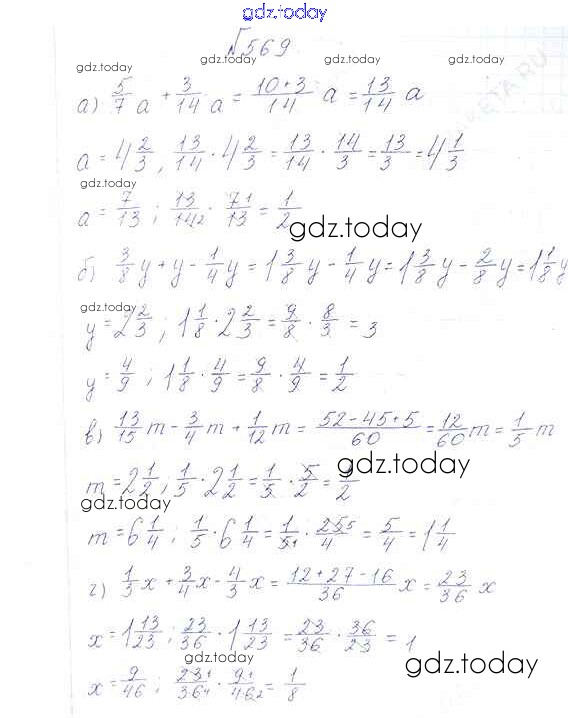 gdz.today
№569
gdz.today gdz.today gdz.today gdz.today
а) 5/7 a + 3/14 a = (10+3)/14 a = 13/14 a
a = 4 2/3, 13/14 · 4 2/3 = 13/14 · 14/3 = 13/3 = 4 1/3
gdz.today
a = 7/13; 13/14 2 · 7 1/13 = 1/2
gdz.today
б) 3/8 y + y - 1/4 y = 1 3/8 y - 1/4 y = 1 3/8 y - 2/8 y = 1 1/8 y
gdz.today
y = 2 2/3; 1 1/8 · 2 2/3 = 9/8 · 8/3 = 3
y = 4/9; 1 1/8 · 4/9 = 9/8 · 4/9 = 1/2
в) 13/15 m - 3/4 m + 1/12 m = (52-45+5)/60 = 12/60 m = 1/5 m
gdz.today
m = 2 1/2; 1/5 · 2 1/2 = 1/5 · 5/2 = 1/2
gdz.today
m = 6 1/4; 1/5 · 6 1/4 = 1/5 1 · 25 5/4 = 5/4 = 1 1/4
г) 1/3 x + 3/4 x - 4/3 x = (12+27-16)/36 x = 23/36 x
x = 1 13/23; 23/36 · 1 13/23 = 23/36 · 36/23 = 1
gdz.today
x = 9/46; 23 1/36 4 · 9 1/46 2 = 1/8
gdz.today